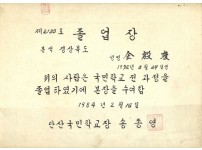 제2120호 졸업장
본적 경상북도
성명 金毅慶
위의 사람은 국민학교 전 과정을
졸업하였기에 본장을 수여함
1984년 2월 16일
안산국민학교장 송종영